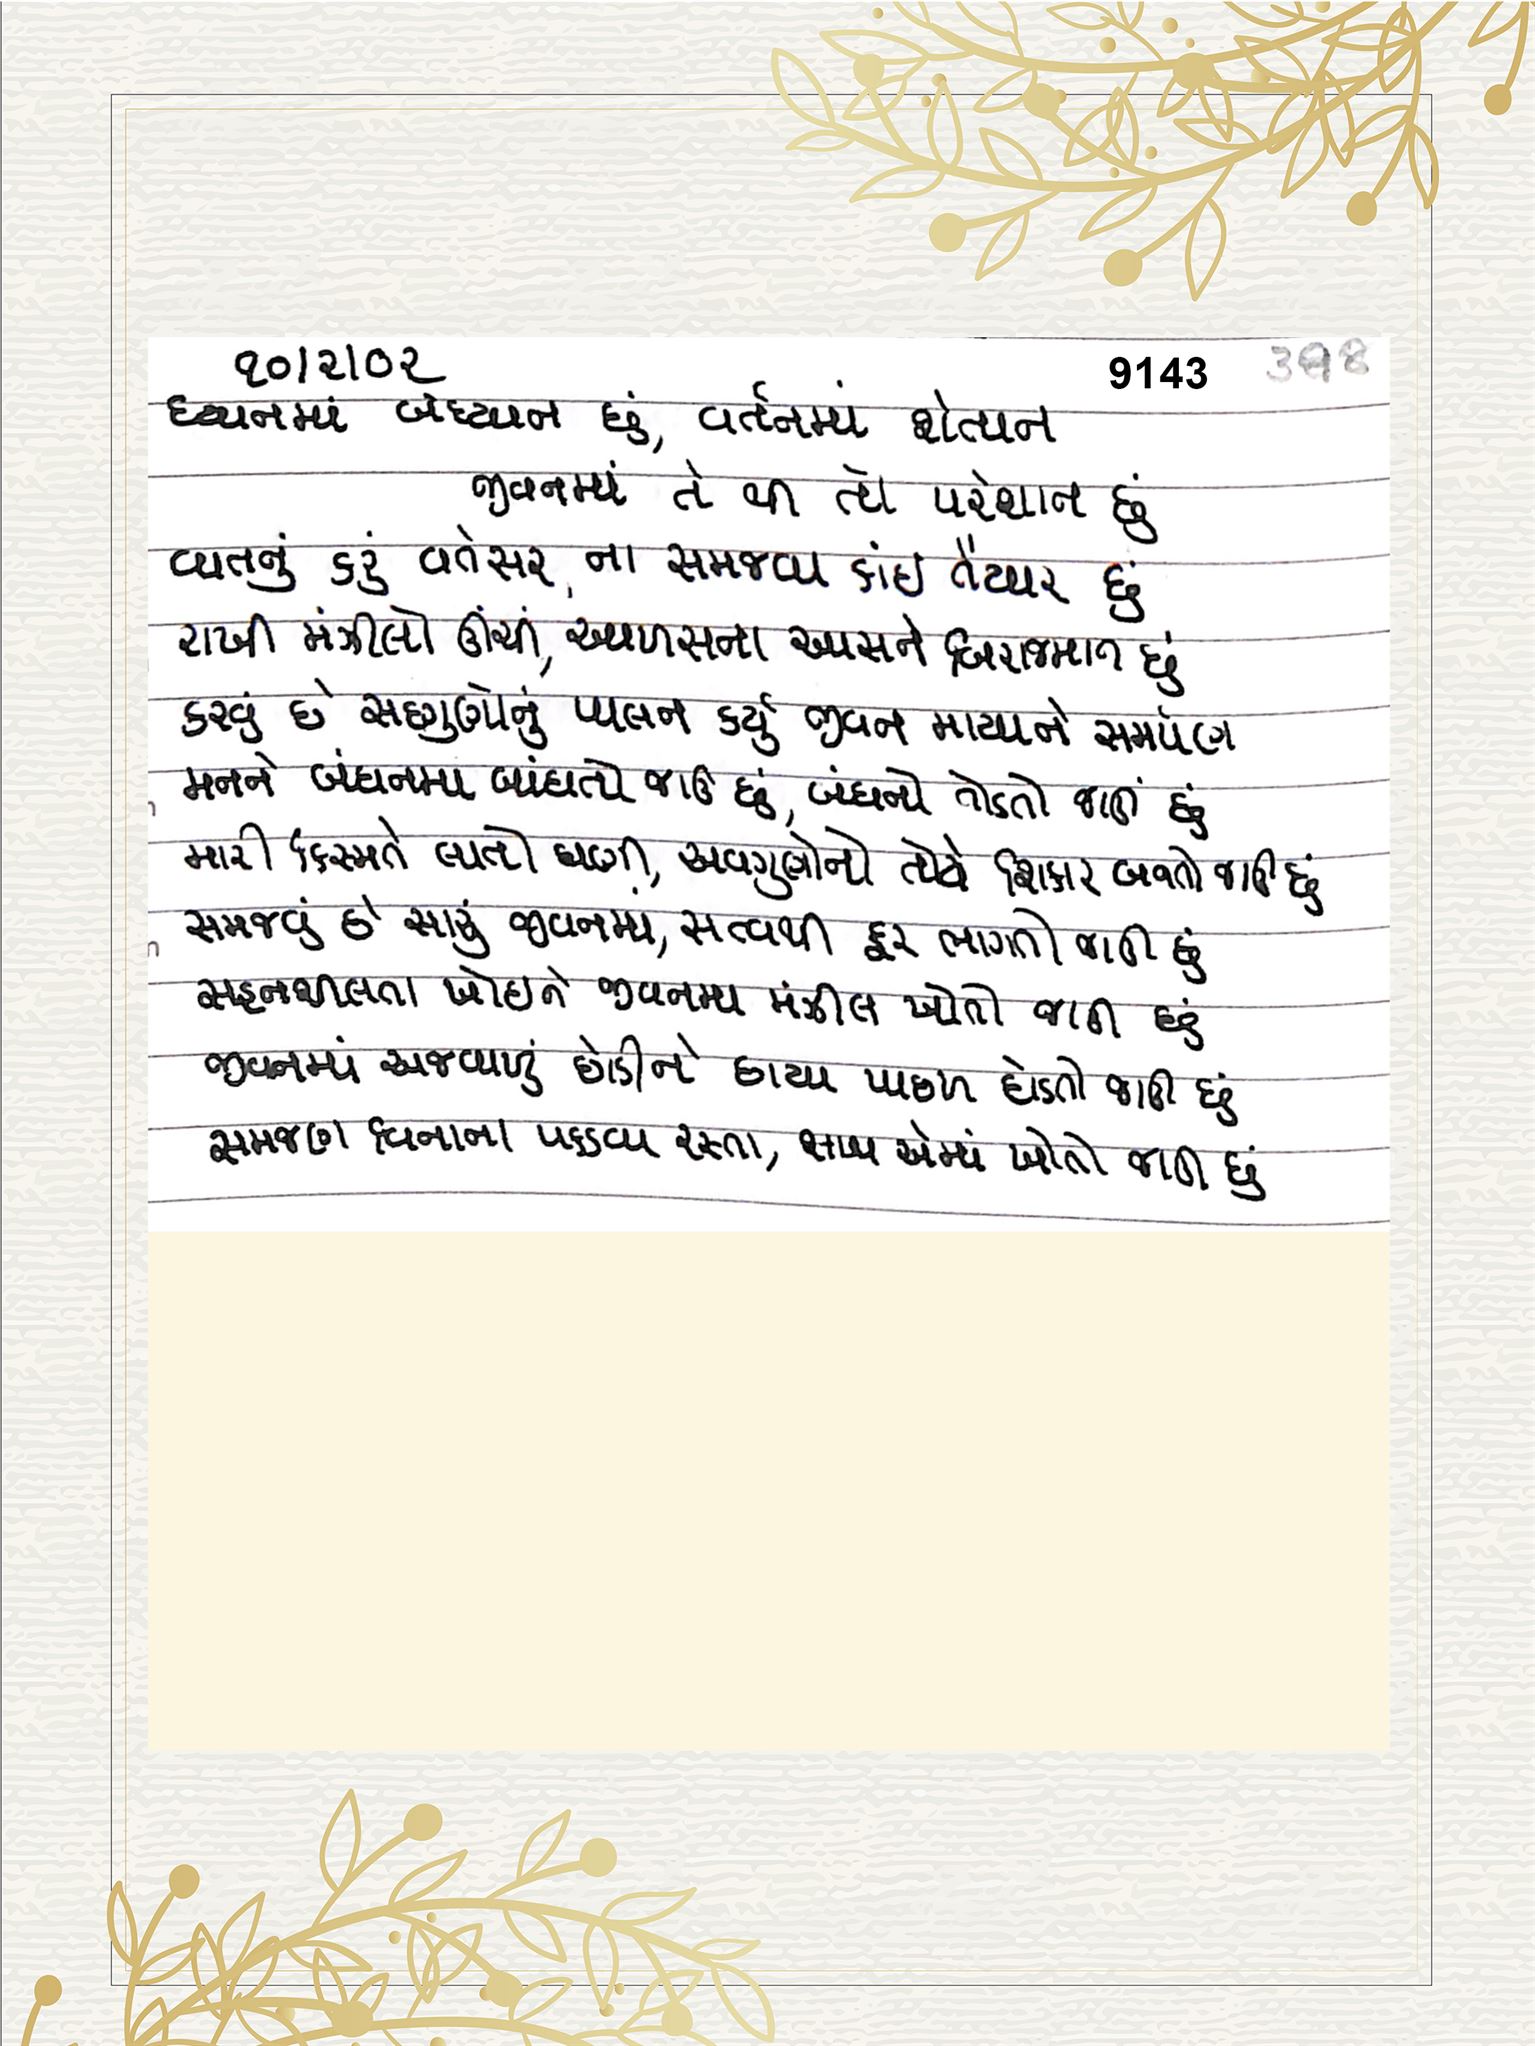 ૧૦/૨/૦૨ 9143
ધ્યાનમાં બેધ્યાન છું, વર્તનમાં શેતાન
જીવનમાં તે થી તો પરેશાન છું
વાતનું કરું વતેસર, ના સમજવા કાંઇ તૈયાર છું
રાખી મંઝીલો ઊંચી, આળસના આસને બિરાજમાન છું
કરવું છે સદ્દગુણોનું પાલન કર્યું જીવન માયાને સમર્પણ
મનને બંધનમા બાંધતો જાઉં છું, બંધનો તોડતો જાઉં છું
મારી કિસ્મતે લાતો ઘણી, અવગુણોનો તોયે શિકાર બનતો જાઉં છું
સમજવું છે સારું જીવનમાં, સત્વથી દૂર ભાગતો જાઉં છું
સહનશીલતા ખોઇને જીવનમા મંઝીલ ખોતો જાઉં છું
જીવનમાં અજવાળું છોડીને છાયા પાછળ દોડતો જાઉં છું
સમજણ વિનાના પકડવા રસ્તા, સાથ એમાં ખોતો જાઉં છું